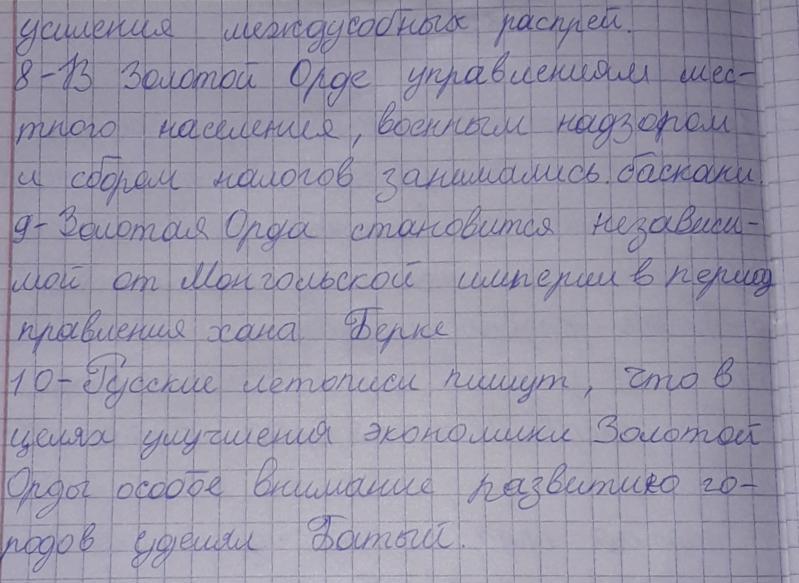 усиления междусобных распрей.
8-В Золотой Орде управлениям мес-
тного населения, военным надзором
и сбором налогов занимались баскаки.
9-Золотая Орда становится независи-
мой от Монгольской империи в период
правления хана Берке
10-Русские летописи пишут, что в
целях улучшения экономики Золотой
Орды особое внимание развитию го-
родов уделял Батый.